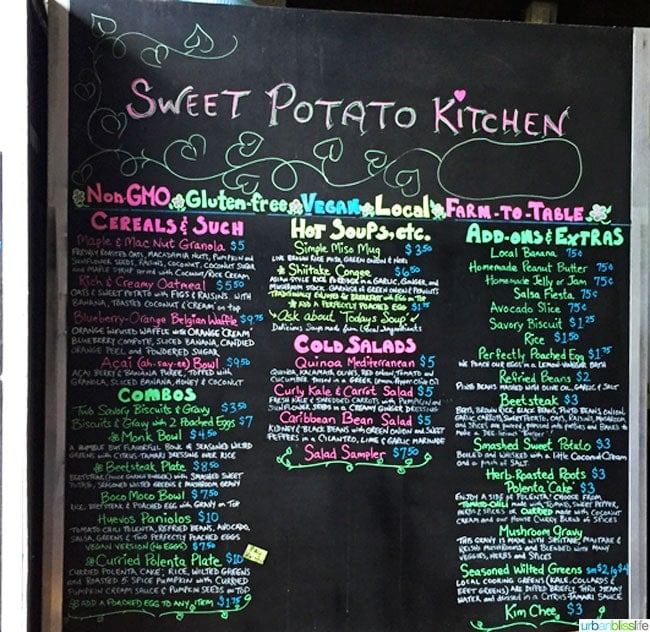 SWEET POTATO KITCHEN
Non GMO Gluten-free VEGAN Local FARM-TO-TABLE
CEREALS & SUCH
Maple & Mac Nut Granola $5
FRESHLY ROASTED OATS, MACADAMIA NUTS, PUMPKIN AND
SUNFLOWER SEEDS, RAISINS, COCONUT, COCONUT SUGAR
AND MAPLE SYRUP served with COCONUT/RICE CREAM.
Rich & Creamy Oatmeal $5.50
OATS & SWEET POTATO WITH FIGS & RAISINS. WITH
BANANA, TOASTED COCONUT & CREAM on top
Blueberry-Orange Belgian Waffle $9.75
ORANGE INFUSED WAFFLE WITH ORANGE CREAM
BLUEBERRY COMPOTE, SLICED BANANA, CANDIED
ORANGE PEEL and POWDERED SUGAR
Acai (ah-say-ee) Bowl $9.50
ACAI BERRY & BANANA PUREE, TOPPED WITH
GRANOLA, SLICED BANANA, HONEY & COCONUT
COMBOS
Two Savory Biscuits & Gravy $3.50
Biscuits & Gravy with 2 Poached Eggs $7
Monk Bowl $4.50
A HUMBLE BUT FLAVORFUL BOWL OF SEASONED WILTED
GREENS WITH CITRUS-TAMARI DRESSING OVER RICE
Beetsteak Plate $8.50
WITH SMASHED SWEET
POTATO, SEASONED WILTED GREENS & MUSHROOM GRAVY
Boco Moco Bowl $7.50
RICE, BEETSTEAK & POACHED EGG WITH GRAVY ON TOP
Huevos Paniolos $10
TOMATO CHILI POLENTA, REFRIED BEANS, AVOCADO,
SALSA, GREENS & TWO PERFECTLY POACHED EGGS
VEGAN VERSION (No EGGS) $7.50
Curried Polenta Plate $10
CURRIED POLENTA CAKE, RICE, WILTED GREENS
AND ROASTED 5 SPICE PUMPKIN WITH CURRIED
PUMPKIN CREAM SAUCE & PUMPKIN SEEDS ON TOP
ADD A POACHED EGG TO ANY ITEM $1.75
HOT SOUPS, ETC.
Simple Miso Mug $3.50
LIVE BROWN RICE MISO, GREEN ONION & NORI
Shiitake Congee $6.50
ASIAN-STYLE RICE PORRIDGE in a GARLIC, GINGER, AND
MUSHROOM STOCK. GARNISH of GREEN ONION & PEANUTS
TRADITIONALLY ENJOYED for BREAKFAST WITH EGG ON TOP
ADD A PERFECTLY POACHED EGG $1.75
Ask about Todays Soup
Delicious Soups made from Local Ingredients
COLD SALADS
Quinoa Mediterranean $5
QUINOA, KALAMATA OLIVES, RED ONION, TOMATO AND
CUCUMBER tossed in a GREEK Lemon-Pepper Olive Oil
Curly Kale & Carrot Salad $5
FRESH KALE & SHREDDED CARROTS WITH PUMPKIN AND
SUNFLOWER SEEDS IN A CREAMY GINGER DRESSING
Caribbean Bean Salad $5
KIDNEY & BLACK BEANS WITH GREEN ONION AND SWEET
PEPPERS IN A CILANTRO, LIME & GARLIC MARINADE
Salad Sampler $7.50
ADD-ONS & EXTRAS
Local Banana 75¢
Homemade Peanut Butter 75¢
Homemade Jelly or Jam 75¢
Salsa Fiesta 75¢
Avocado Slice 75¢
Savory Biscuit $1.25
Rice $1.50
Perfectly Poached Egg $1.75
WE POACH OUR EGGS IN A LEMON-VINEGAR BATH
Refried Beans $2
PINTO BEANS MASHED WITH OLIVE OIL, GARLIC & SALT
Beetsteak $3
BEETS, BROWN RICE, BLACK BEANS, PINTO BEANS, ONION
GARLIC, CARROTS, SWEET POTATO, OATS, RAISINS, MUSHROOM
AND SPICES are pureed, pressed into patties AND BAKED TO
MAKE a DEE-licious "Burger"
Smashed Sweet Potato $3
BOILED AND WHISKED with a little COCONUT CREAM
and a pinch of SALT.
Herb-Roasted Roots $3
Polenta Cake $3
ENJOY A SIDE of POLENTA! CHOOSE FROM
TOMATO-CHILI made with TOMATO, SWEET PEPPER,
HERBS & SPICES or CURRIED made with COCONUT
CREAM and our HOUSE CURRY BLEND of SPICES
Mushroom Gravy
THIS GRAVY IS MADE WITH SHIITAKE, MAITAKE &
REISHI MUSHROOMS AND BLENDED WITH MANY
VEGGIES, HERBS AND SPICES
Seasoned Wilted Greens sm $2 lg $4
LOCAL COOKING GREENS (KALE, COLLARDS &
BEET GREENS) are DIPPED BRIEFLY THRU STEAMY
WATER and dressed in a CITRUS-TAMARI SAUCE
Kim Chee $3
urbanblisslife